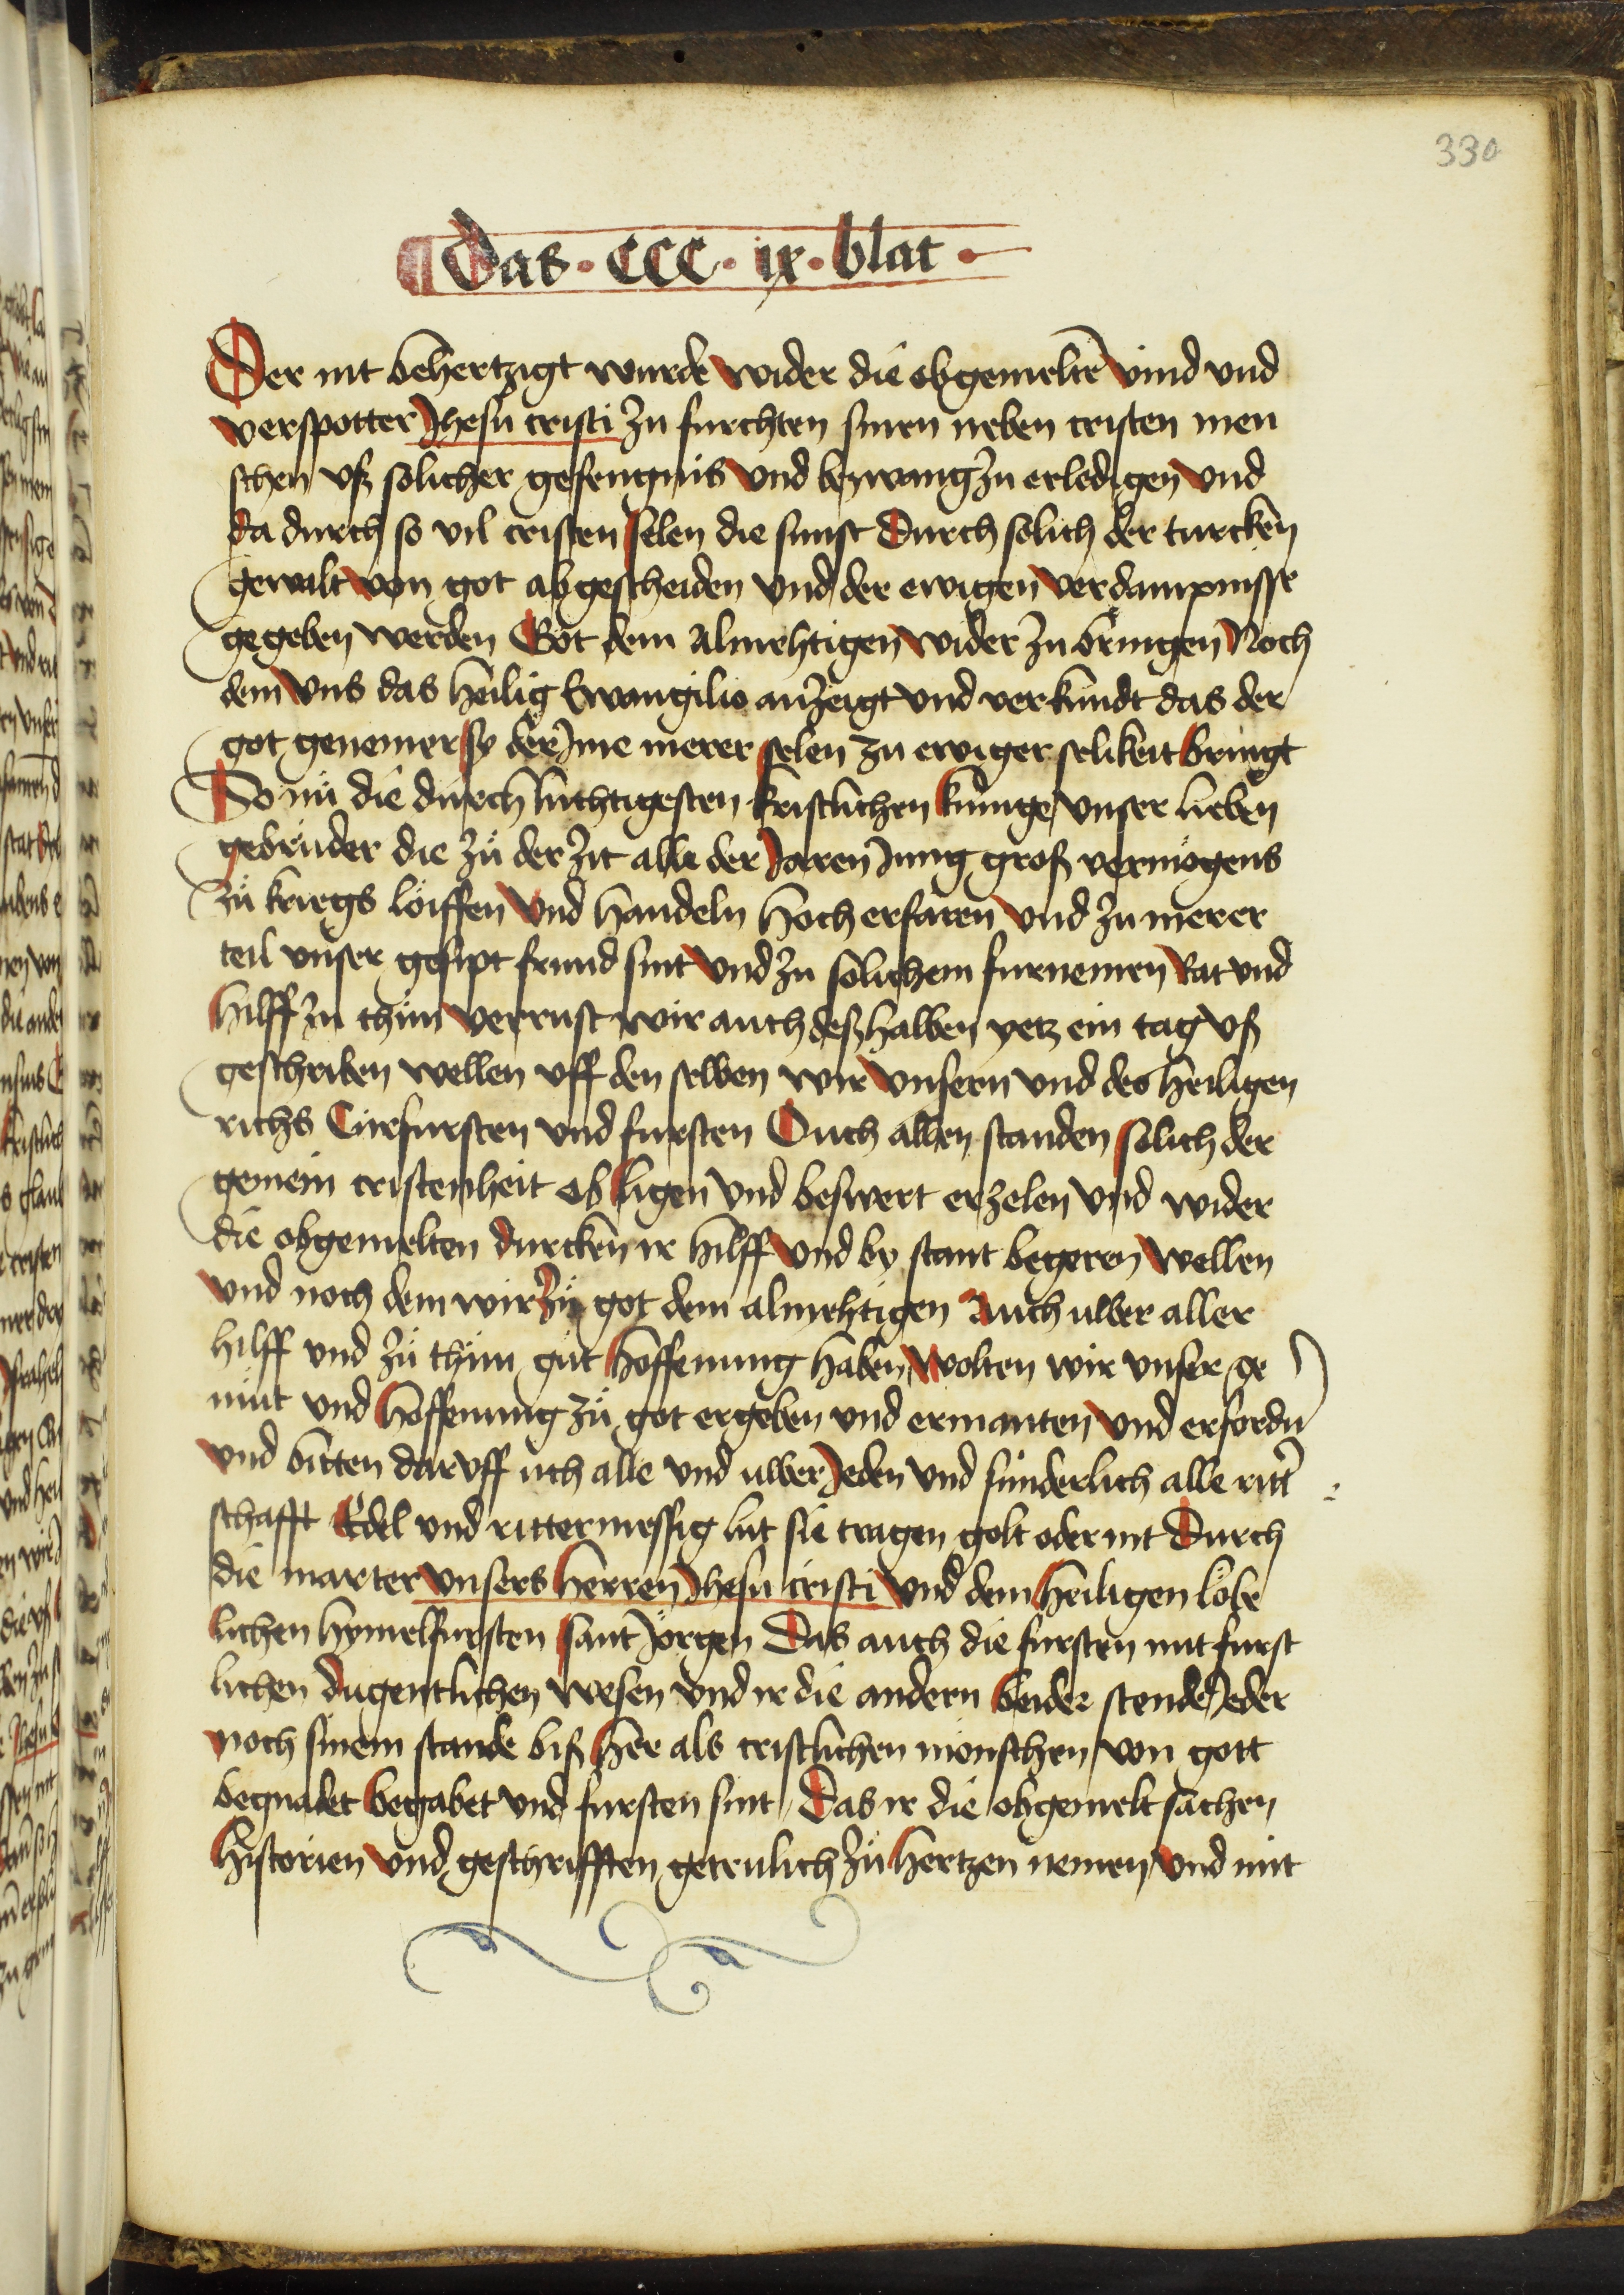 330
Das · CCC · ix · blat ·
Der nit behertzigt wurde wider die obgemeltē vind vnd
verspotter Jhesu cristi zu furchten sinen neben cristen men
schen vß solicher gefengnis vnd bezwang zu erledigen vnd
da durch so vil cristen selen die sunst durch solich der turcken
gewalt von got abgescheiden vnd der ewigen verdampnisse
gegeben werden Got dem almehtigen wider zu bringen Noch
dem vns das heilig Ewangilio anzeigt vnd verkundt das der
got genemer sy der Jme merer selen zu ewiger selikeit bringt
So nü die durch lüchtigesten kristlichen künige vnser lieben
gebrüder die zü der zit alle der Jaren Jung groß vermögens
zü kriegs löiffen vnd handeln hoch erfaren vnd zu merer
teil vnser gesipt frund sint vnd zu solichem furnemen Rat vnd
hilff zu thün verrust wir auch deßhalben yetz ein tag vß
geschriben wellen vff den selben wir vnsern vnd des heiligen
richs Cürfursten vnd fursten Ouch allen standen solich der
gemein cristenheit obligen vnd beswert erzelen vnd wider
die obgemelten durcken ir hilff vnd by stant begeren wellen
vnd noch dem wir zü got dem almehtigen Auch uwer aller
hilff vnd zü thün güt hoffenung haben wolten wir vnser ge
müt vnd hoffenung zü got ergeben vnd ermanten vnd erfordn
vnd bitten daruff üch alle vnd uwer Jeden vnd sünderlich alle ritt
schafft Edel vnd rittermessig lüt sie tragen golt oder nit Durch
die marter vnsers herren Jhesu cristi vnd dem heiligen löbe
lichen hymelfursten sant Jörgen Das auch die fursten mit furst
lichen dugentlichen wesen vnd ir die andern beider stende Jeder
noch sinem stande biß her als cristlichen mönschen von gott
begnadet begabet vnd fursten sint Das ir die obgemelt sachen
historien vnd geschrifften getrulich zü hertzen nemen vnd mit